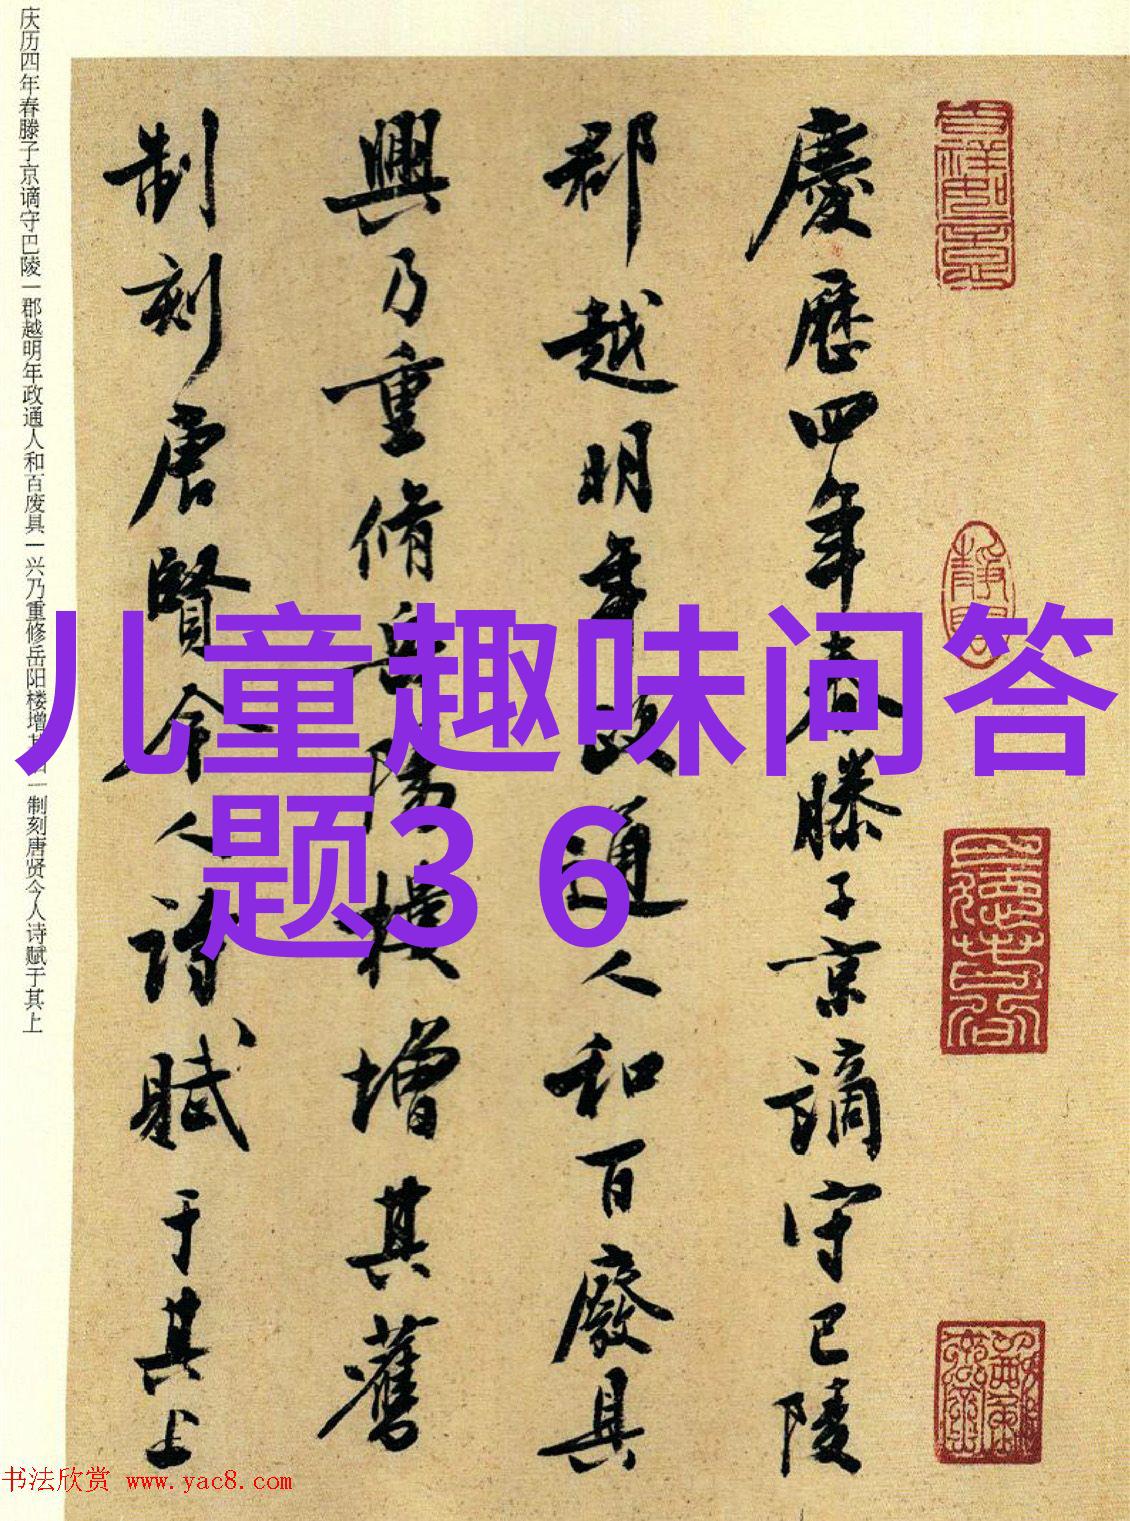 慶歷四年春滕子京謫守巴陵
郡越明年政通人和百廢具
興乃重脩岳陽樓增其舊
制刻唐賢今人詩賦于其上
庆历四年春滕子京谪守巴陵一郡越明年政通人和百废具一兴乃重修岳阳楼增其旧一制刻唐贤今人诗赋于其上
儿童趣味问答
题3 6
书法欣赏 www.yac8.com